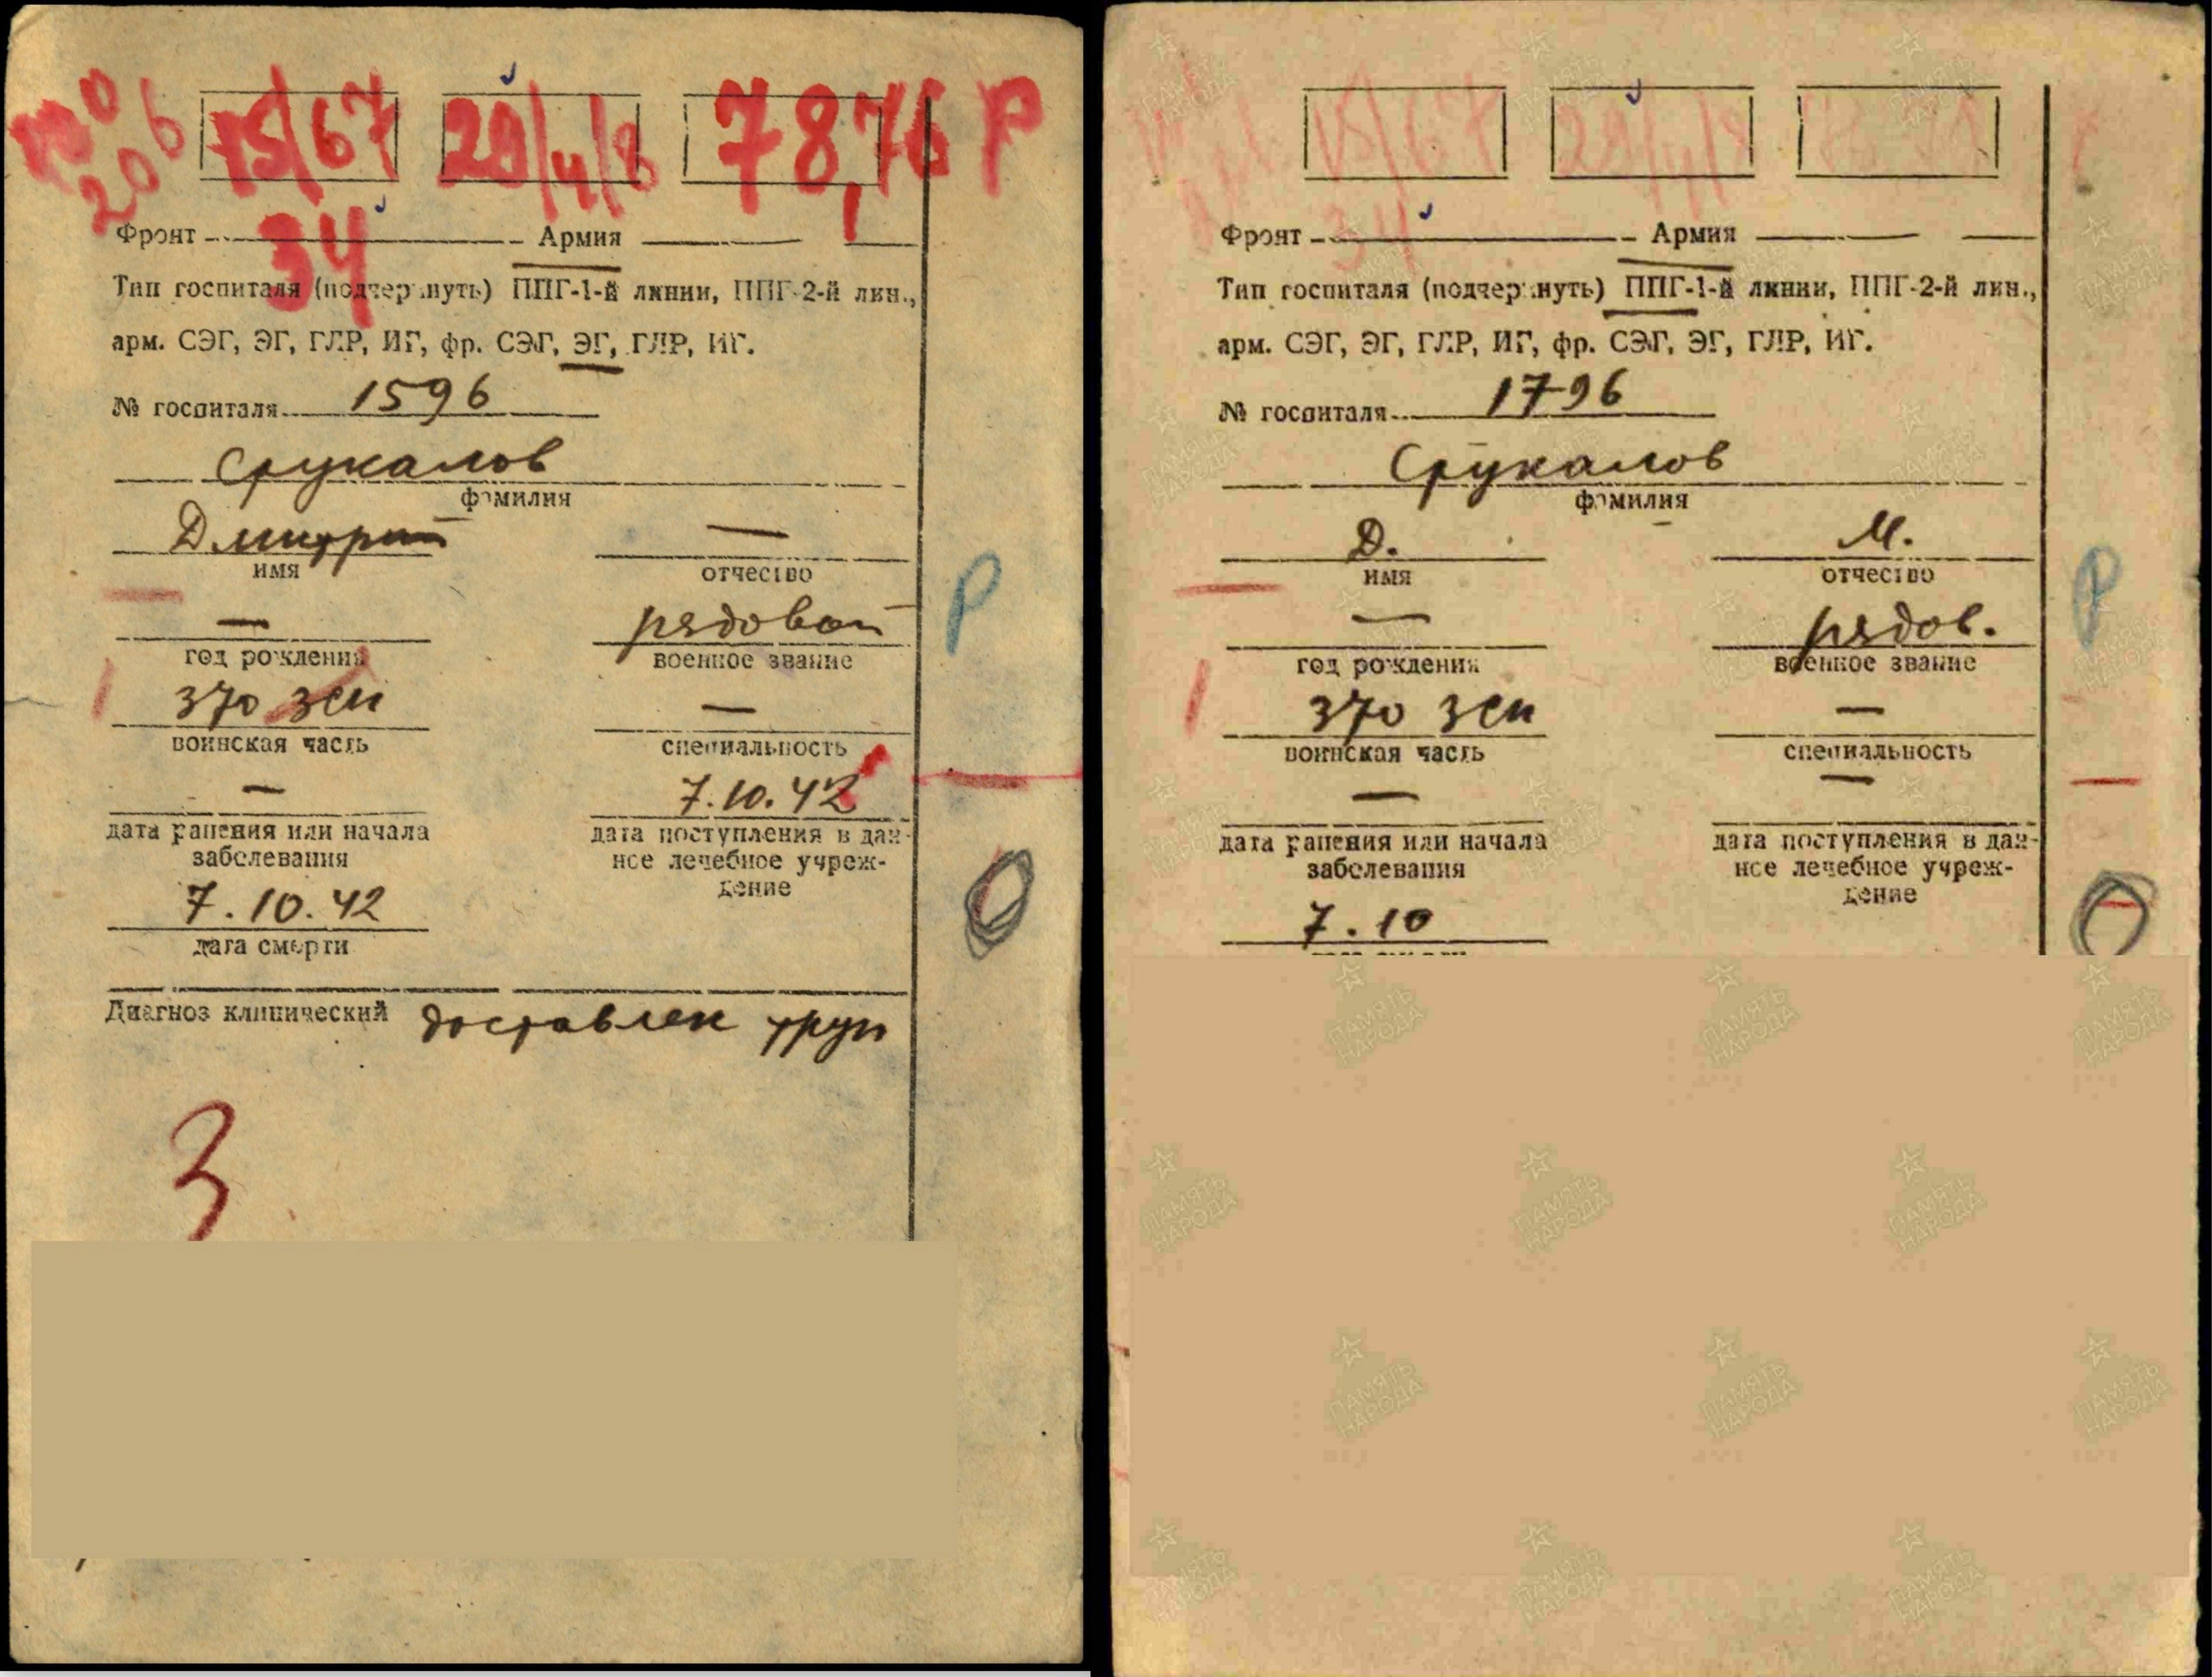 15/67 29/4/8 78,76 Р
34
Фронт Армия
Тип госпиталя (подчеркнуть) ППГ-1-й линии, ППГ-2-й лин.,
арм. СЭГ, ЭГ, ГЛР, ИГ, фр. СЭГ, ЭГ, ГЛР, ИГ.
№ госпиталя 1596
Срукалов
фамилия
Дмитрий —
имя отчество
Р
— рядовой
год рождения военное звание
370 зсп —
воинская часть специальность
— 7.10.42
дата ранения или начала заболевания
дата поступления в дан-
ное лечебное учреж-
дение
7.10.42
дата смерти
Диагноз клинический доставлен труп
3
15/67 29/4/8
34
Фронт Армия
Тип госпиталя (подчеркнуть) ППГ-1-й линии, ППГ-2-й лин.,
арм. СЭГ, ЭГ, ГЛР, ИГ, фр. СЭГ, ЭГ, ГЛР, ИГ.
№ госпиталя 1796
Срукалов
фамилия
Д. М.
имя отчество
Р
— рядов.
год рождения военное звание
370 зсп —
воинская часть специальность
— —
дата ранения или начала
заболевания
дата поступления в дан-
ное лечебное учреж-
дение
7.10
ПАМЯТЬ НАРОДА